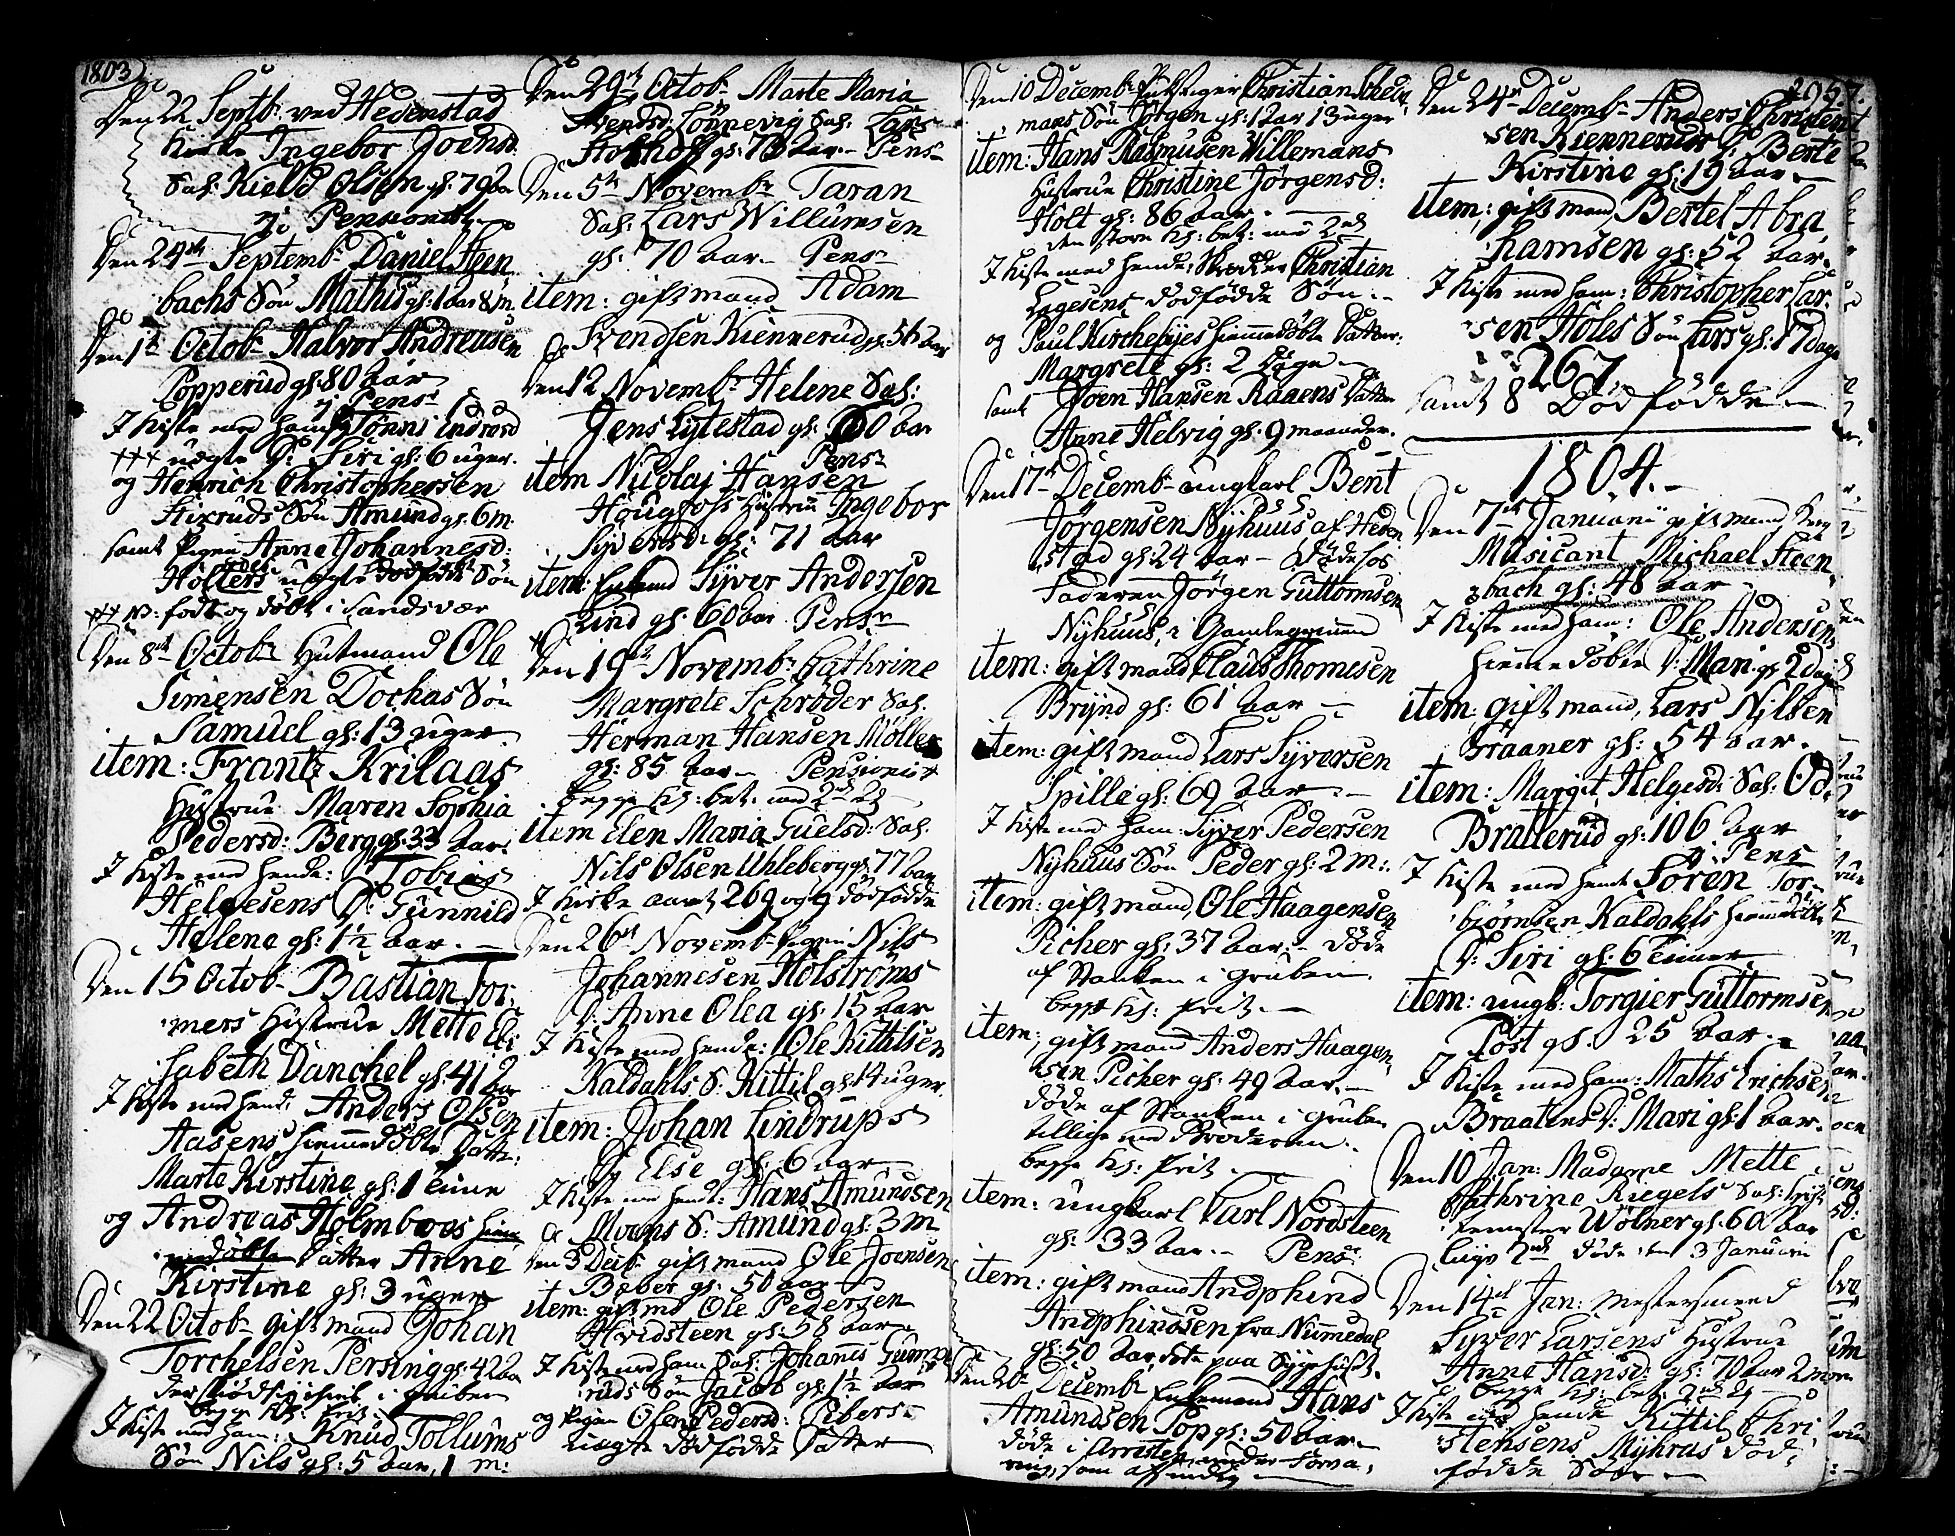 1803
Den 22 Septb: ved Hedenstad
Kirke Ingebor Joensd
Sal: Kield Olsen gl: 79 aar
Pensionist
Den 24de Septemb: Daniel Steen
bachs Søn Mathis gl: 1 aar 8 m.
Den 1te Octob: Halvor Andreasen
Popperud gl: 80 aar
Pens:
I Kiste med ham: Tønni
+++ uægte D: Siri gl: 6 uger.
og Henrich Christophersen
Søn Amund gl: 6 m.
samt Pigen Anne Johannesd:
Holters uægte dødfødde Søn
+++ NB: født og døbt i Sandsvær
Den 8de Octob: Hutmand Ole
Simensen Dochas Søn
Samuel gl: 13 uger
item: Frantz Krilaas
Hustrue Maren Sophia
Pedersd: Berg gl: 33 aar.
I Kiste med hende: Tobias
Helgesens D: Gunnild
Helene gl: 1½ aar.
Den 15 Octob: Bastian Tor-
mers Hustrue Mette Eli
sabeth Danchel gl: 41 aar
I Kiste med hende Anders Olsen
Aasens hiemmedøbte Datter
Marte Kirstine gl: 1 time
og Andreas Holmboes hiem
medøbte Datter Anne
Kirstine gl: 3 uger
Den 22 Octob: gift mand Johan
Torchelsen Persing gl: 42 aar
i gruben
begge Kl: frit
I Kiste med ham: Knud Tollums
Søn Nils gl: 5 aar, 1 m:
Den 29de Octob: Marte Maria
Svendsd: Lønnevig Sal: Lars
gl: 73 aar Pens
Den 5te Novemb: Taran
Sal: Lars Willumsen
gl: 70 aar Pens:
item: gift mand Adam
Svendsen Kiennerud gl: 56 aar
Den 12 Novemb: Helene Sal:
Jens Lytestad gl: 60 aar
Pens:
item Nicolaj Hansen
Hougfoss Hustrue Ingebor
Syversd: gl: 71 aar
item: Enkemd Syver Andersen
Lind gl: 60 aar Pens:
Den 19de Novemb: Cathrine
Margrete Schrøder Sal.
Herman Hansen Møller
gl: 85 aar Pensionist
begge Kl: bet: med 2 rd
item Elen Maria Guelsd: Sal.
Nils Olsen Uhleberg gl: 77 aar
I Kirke aaret 269 og 9 dødfødde
Den 26de Novemb: Pigen Nils
Johannesen Holstrøms
D: Anne Olea gl: 15 aar
I Kiste med hende: Ole Kittilsen
Kaldahls S: Kittil gl: 14 uger.
item: Johan Lindrups
D: Else gl: 6 aar
I Kiste med hende: Hans Amundsen
Moens S: Amund gl: 3 m
Den 3 Decb: gift mand Ole Joensen
Bøber gl: 50 aar
item: gift md Ole Pedersen
Hvidsteen gl: 58 aar
I Kiste med ham Sal: Johannes Gunne
ruds Søn Jacob gl: 1½ aar
og Pigen Olea Pedersd: Pibers
uægte dødfødde Datter
Den 10 Decemb: Christian Schei
mans Søn Jørgen gl: 1 aar 13 uger
item: Hans Rasmusen Willemans
Hustrue Christine Jørgensd:
Holt gl: 86 aar.
den store Kl: bet: med 2 rd
I Kiste med hende, Skræder Christian
Lagesens dødfødde Søn.
og Paul Kirchebyes hiemmedøbte Datter
Margrete gl: 2 Dage
samt Joen Hansen Raaens Datter
Anne Helvig gl: 9 maaneder.
Den 17de Decemb: ungkarl Bent
Jørgensen Nyhuus af Heden
stad gl: 24 aar
Faderen Jørgen Guttormsen
Nyhuus, i Gamlegrinnen
item: gift mand Claus Thomesen
Brynd gl: 61 aar
item: gift mand Lars Syversen
Spille gl: 69 aar.
I Kiste med ham: Syver Pedersen
Nyhuus Søn Peder gl: 2 m:
item: gift mand, Ole Haagensen
Picher gl: 37 aar. døde
af Stanken i gruben.
begge Kl: frit.
item: gift mand Anders Haagen
sen Picher gl: 49 aar.
døde af Stanken i gruben
tillige med Broderen.
begge Kl: frit.
item: ungkarl Carl Nordsteen
gl: 33 aar. Pens:
item: gift mand Andphind
Andphindsen fra Numedal
gl: 50 aar døde paa Sygehuset.
Den 20de Decemb: Enkemand Hans
Amundsen Pop gl: 50 aar.
døde i Arresten under forva
ring, som
267.
Den 24de Decemb: Anders Christen
sen Kiennerud D: Berte
Kirstine gl: 19 aar.
item: gift mand Bertel Abra
hamsen gl: 52 aar.
I Kiste med ham: Christopher Lar-
sen Holes Søn Lars gl: 17 dage
267
samt 8 Dødfødde
1804.
Den 7de Januarii gift mand, Berg
Musicant Michael Steen
bach gl: 48 aar
I Kiste med ham: Ole Andersens
hiemmedøbte D: Mari gl: 2 dage
item: gift mand, Lars Nilsen
Braaner gl: 54 aar.
item: Margit Helgesd: Sal: Od
Brallerud gl: 106 aar
Pens
I Kiste med hende Søren Tor-
biørnsen Kaldahls hiemmedøbte
D: Siri gl: 6 timer.
item: ungk: Torgier Guttormsen
Post gl: 25 aar.
I Kiste med ham: Maths Erichsen
Braatens D: Mari gl: 1 aar.
Den 10 Jan: Madame Mette
Cathrine Riegels Sal:
Wølner gl: 60 aar
døde den 3 Januarii
Den 14de Jan: Mestersmed
Syver Larsens Hustrue
Anne Hansd: gl: 70 aar 2 m
begge Kl: bet: 2 rd
I Kiste med hende Kittil Chri
stensens Myhras død-
fødde Søn.